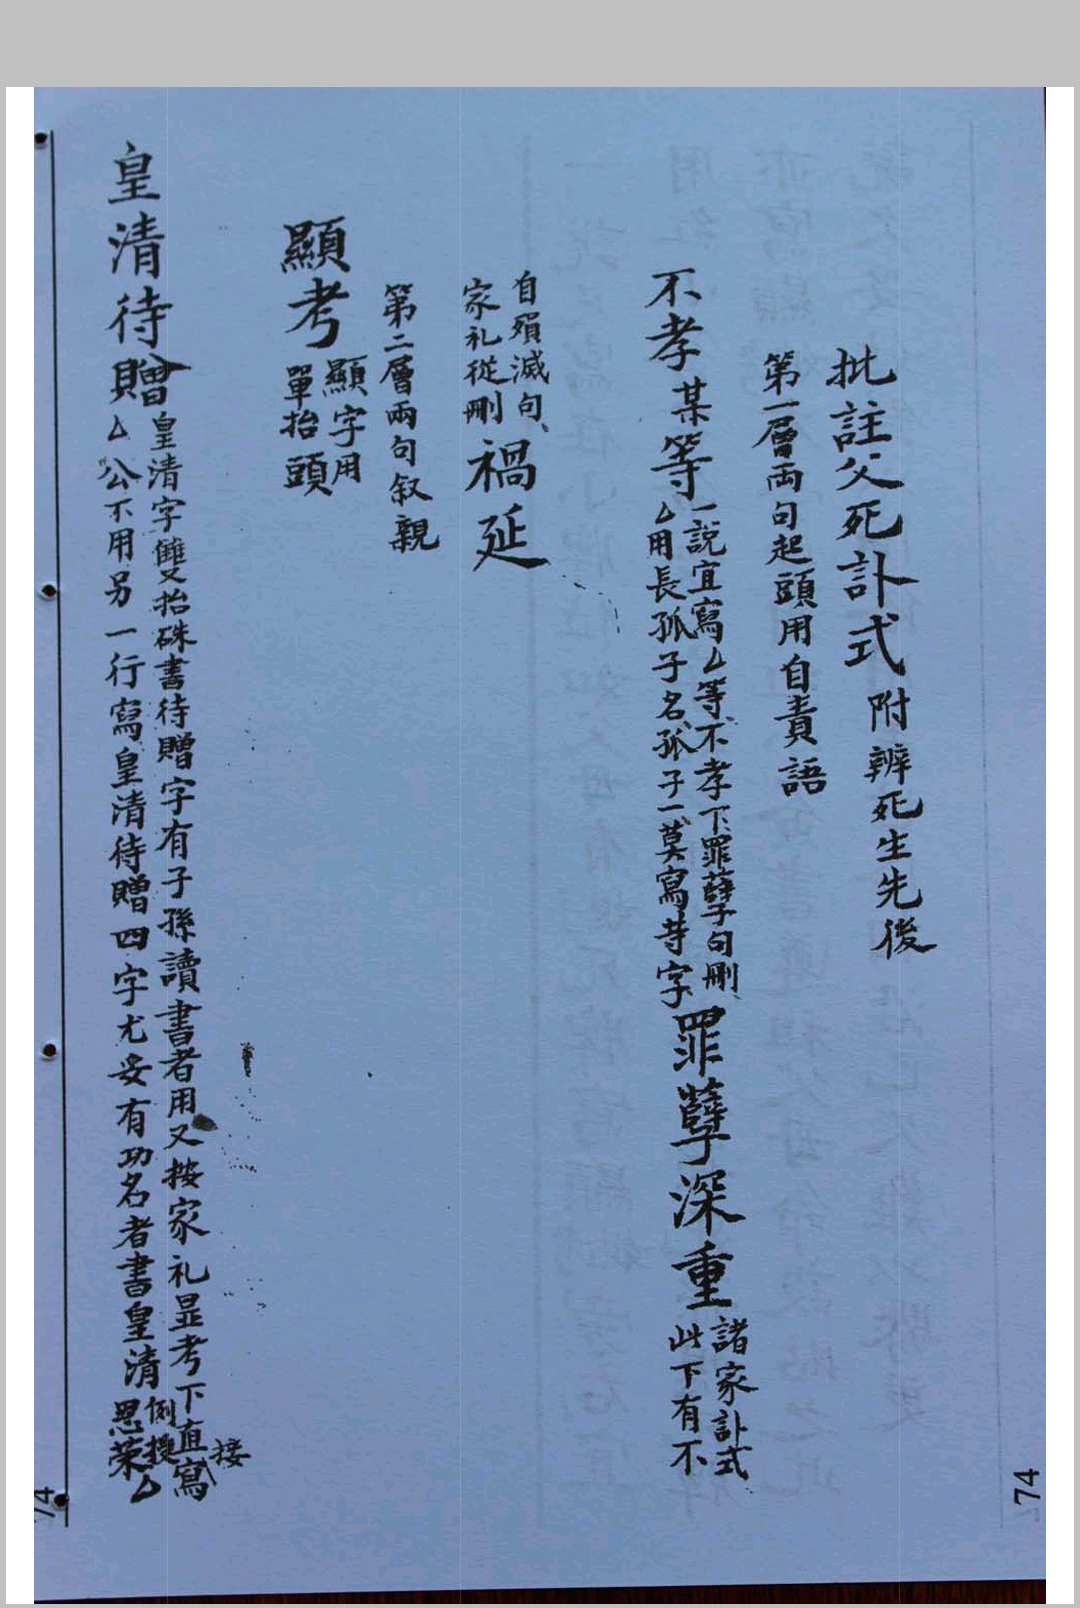 批註父死訃式附辨死生先後
第一層兩句起頭用自責語
不孝某等
一說宜寫厶等不孝下罪孽句刪
厶用長孤子名孤子一莫寫等字
罪孽深重
諸家訃式
此下有不
自殞滅句
家礼從刪
禍延
第二層兩句叙親
顯考
顯字用
單抬頭
皇清待贈
皇清字雙抬硃書待贈字有子孫讀書者用又按家礼显考下直寫
厶公不用另一行寫皇清待贈四字尤妥有功名者書皇清
例授
恩荣厶
接
74
74